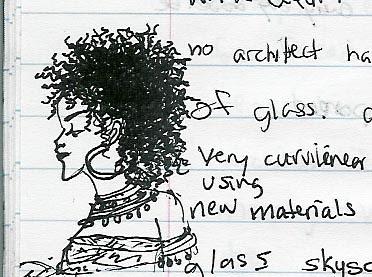 no architect ha
of glass.
Very curvilinear
using
new materials
glass skysc